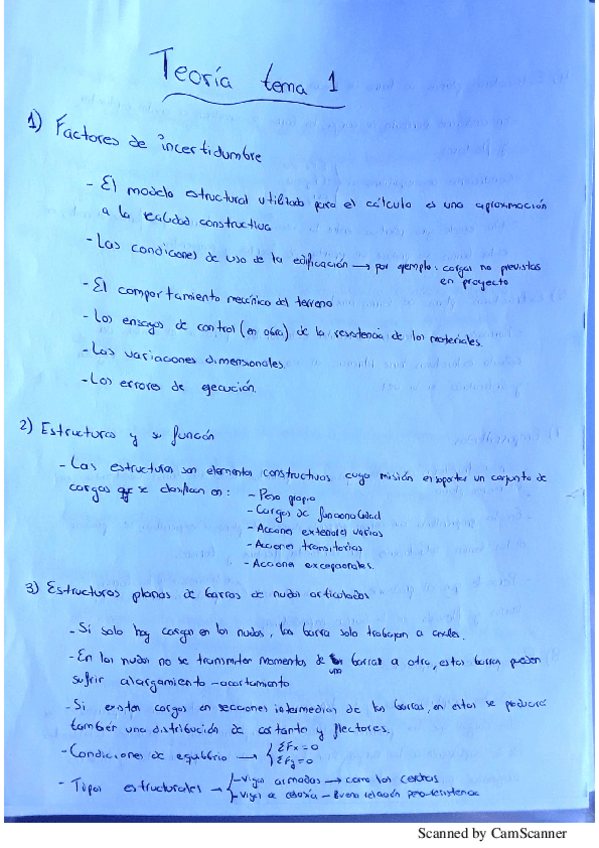 Teoría tema 1
1) Factores de incertidumbre
- El modelo estructural utilizado para el cálculo es una aproximación
a la realidad constructiva
- Las condiciones de uso de la edificación → por ejemplo: cargas no previstas
en proyecto
- El comportamiento mecánico del terreno
- Los ensayos de control (en obra) de la resistencia de los materiales.
- Las variaciones dimensionales.
- Los errores de ejecución.
2) Estructuras y su función
- Las estructuras son elementos constructivos cuya misión es soportar un conjunto de
cargas que se clasifican en: - Peso propio
- Cargas de funcionalidad
- Acciones exteriores varias
- Acciones transitorias
- Acciones excepcionales.
3) Estructuras planas de barras de nudos articulados
- Si solo hay cargas en los nudos, las barras solo trabajan a axiles.
- En los nudos no se transmiten momentos de una barra a otra, estas barras pueden
sufrir alargamiento - acortamiento
- Si existen cargas en secciones intermedias de las barras, en estas se producirá
también una distribución de cortante y flectores.
- Condiciones de equilibrio → { ΣFx = 0
ΣFy = 0
- Tipos estructurales → { - Vigas armadas → como las cerchas
- Vigas de celosía - Buena relación peso-resistencia
Scanned by CamScanner